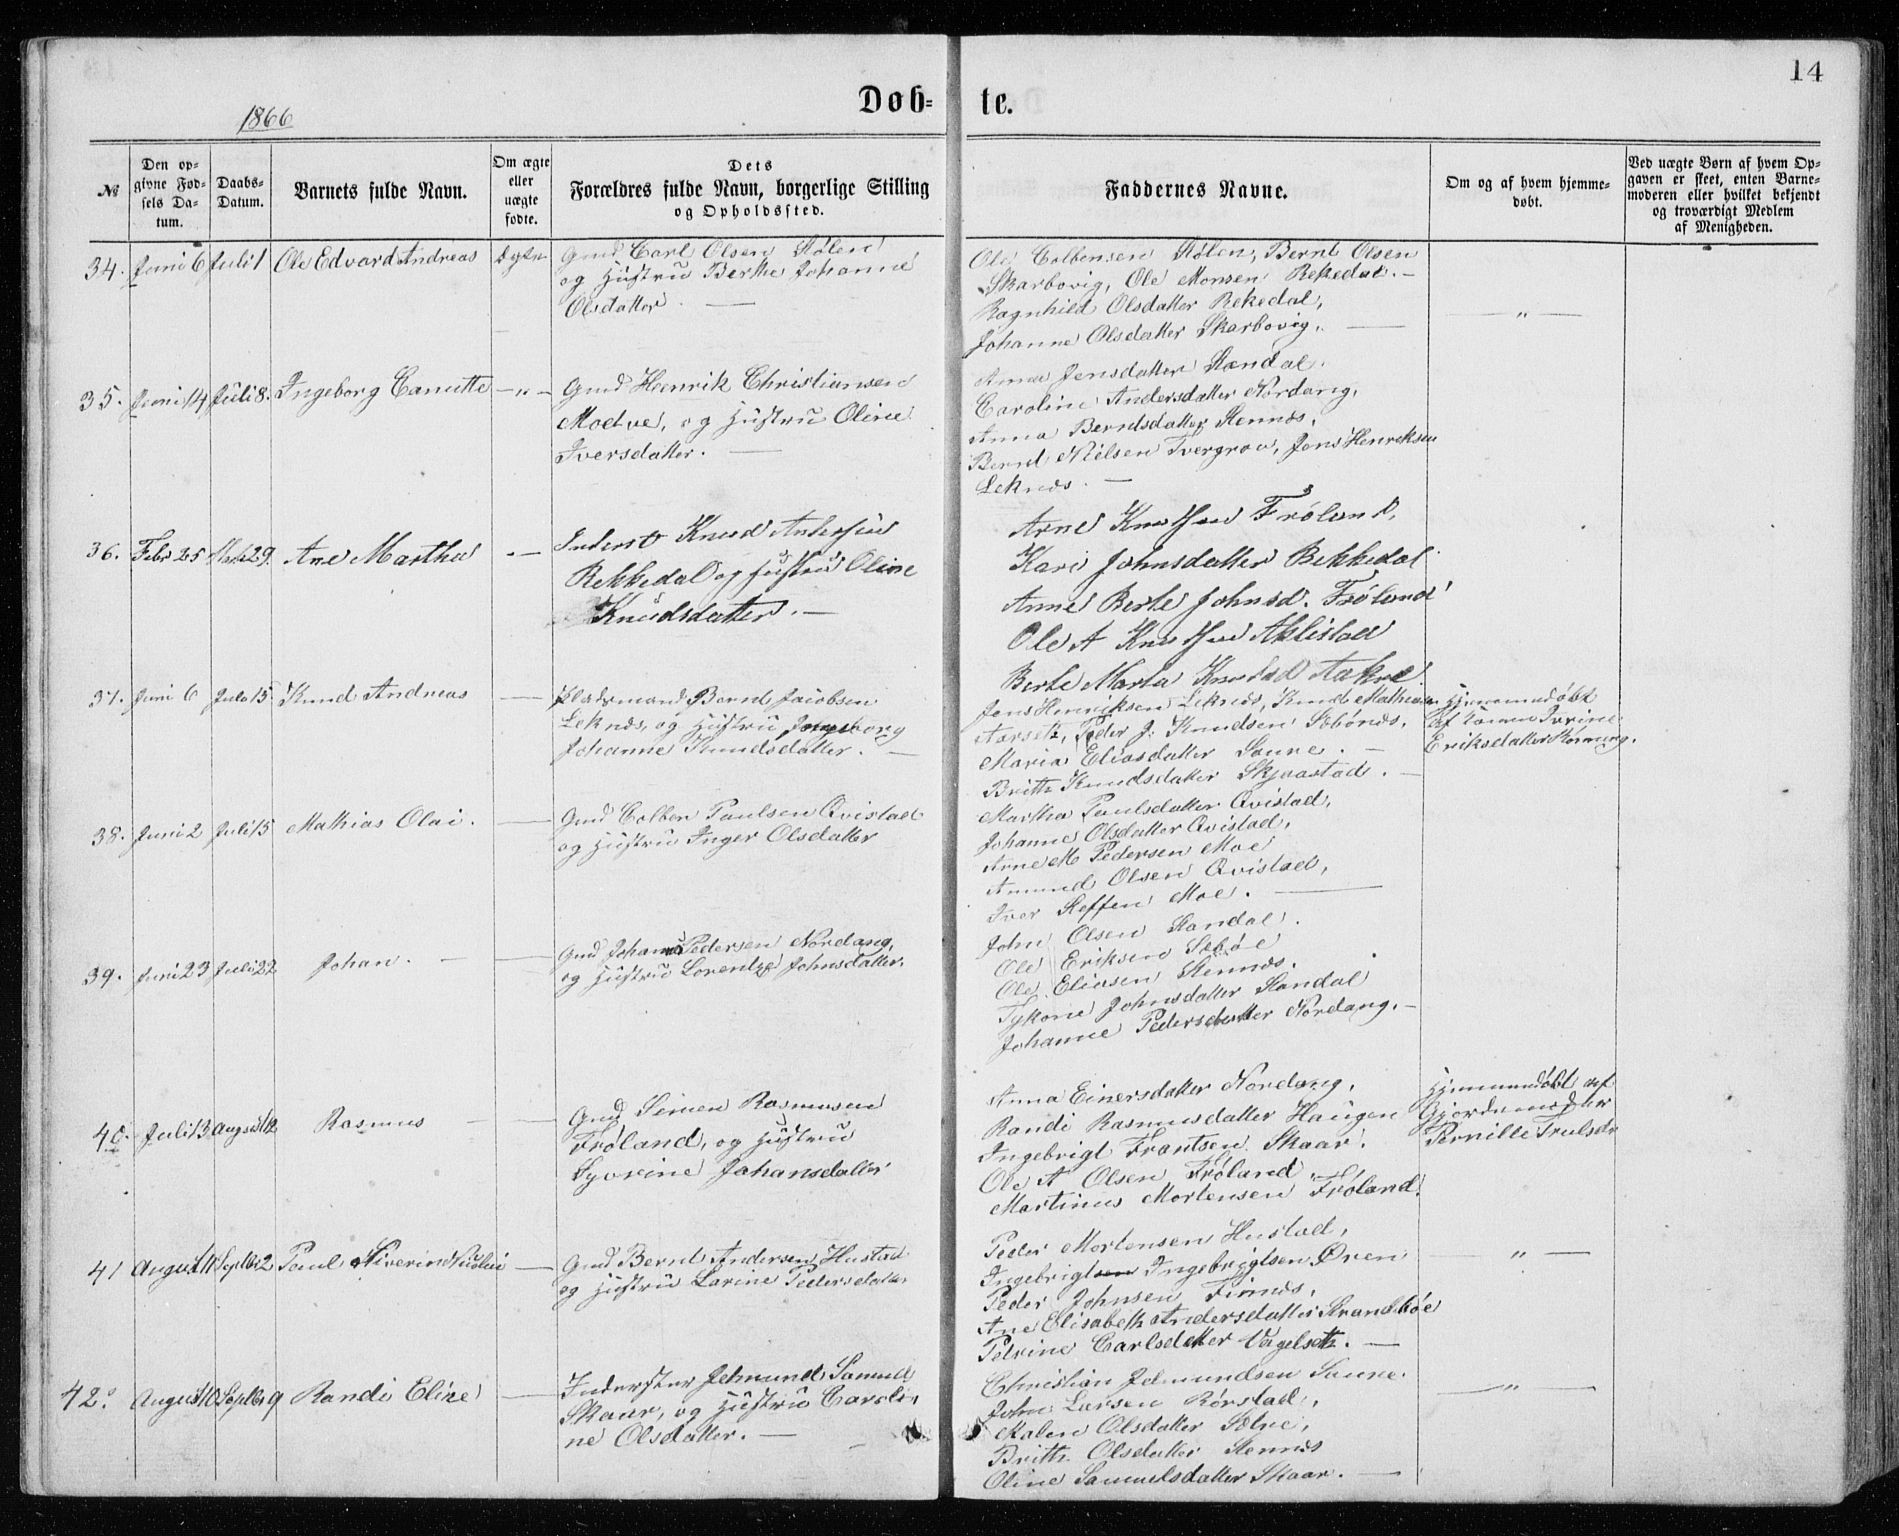 14
Døb-te.
1866
№
Den op-
givne Fød-
sels Da-
tum.
Daabs-
Datum.
Barnets fulde Navn.
Om ægte
eller
uægte
fødte.
Dets
Forældres fulde Navn, borgerlige Stilling
og Opholdssted.
Faddernes Navne.
Om og af hvem hjemme-
døbt.
Ved uægte Børn af hvem Op-
gaven er skeet, enten Barne-
moderen eller hvilket bekjendt
og troværdigt Medlem
af Menigheden.
34. Juni 6 Juli 1 Ole Edvard Andreas Ægte
Gmd Carl Olsen Stølen
og Hustru Berthe Johanne
Olsdatter. —
Ole Colbensen Stølen, Bernt Olsen
Skarbovig, Ole Monsen Rekedal. —
Ragnhild Olsdatter Rekedal,
Johanne Olsdatter Skarbovig. —
— " —
35. Juni 14 Juli 8. Ingeborg Canutte — " —
Gmd Henrik Christiansen
Moe, og Hustru Oline
Iversdatter. —
Anna Jensdatter Standal.
Caroline Andersdatter Nordang,
Anna Berntsdatter Stennæs,
Bernt Nielsen Tvergrov, Jens Henriksen
Leknæs. —
36. Febr 25 29. Ane Martha —
Inderst Knud Andersen
Rekkedal og Hustru Oline
Knudsdatter. —
Arne Knutsen Frøland,
Kari Johnsdatter Rekkedal
Anne Berte Johnsd. Frøland
Ole A Knutsen Aklestad
Berte Marta Aakre
37. Juni 6 Juli 15. Knud Andreas —
Pladsmand Bernt Jacobsen
Leknæs, og Hustru Ingeborg
Johanne Knudsdatter. —
Jens Henriksen Leknæs, Knud Mathias
Aarseth, Peder J. Knudsen Sæbønæs,
Maria Eliasdatter Saure. —
Brithe Knudsdatter Skjvastad. —
Hjemmedøbt
af
Eriksdatter
38. Juni 2 Juli 15 Mathias Olai. —
Gmd Colben Paulsen Qvistad
og Hustru Inger Olsdatter
Martha Paulsdatter Qvistad,
Johanne Olsdatter Qvistad,
Arne M Pedersen Moe
Amund Olsen Qvistad,
Iver Steffen Moe. —
39. Juni 23 Juli 22 Johan. — —
Gmd Johan Pedersen Nordang,
og Hustru Lorentze Johnsdatter.
John Olsen Standal.
Ole Eriksen Sæbøe
Ole Eliasen Stennæs.
Johnsdatter Standal
Johanne Pedersdatter Nordang. —
40. Juli 13 August 12 Rasmus — —
Gmd Simen Rasmusen
Frøland, og Hustru
Syvrine Johansdatter
Anna Einersdatter Nordang,
Randi Rasmusdatter Haugen
Ingebrigt Frantsen Skaar.
Ole A Olsen Frøland,
Martinus Mortensen Frøland.
Hjemmedøbt af
Gjordemoder
Pernille Trulsdr
41 August 11 Septbr 2 Paul Siverin —
Gmd Bernt Andersen Hustad
og Hustru Larine Pedersdatter
Peder Mortensen Hustad,
Ingebrigt Ingebrigtsen Øren
Peder Johnsen Finnæs,
Ane Elisabeth Andersdatter Strandbøe
Petrine Carlsdatter Vagelseth. —
— " —
42. August 10 Septbr 9 Randi Eline —
Inderster Jetmund Samuels
Skaar, og Hustru Caroli-
ne Olsdatter. —
Christian Jetmundsen Saure.
John Larsen Rørstad,
Malen Olsdatter
Brithe Olsdatter Stennæs
Oline Samuelsdatter Skaar. —
— " —